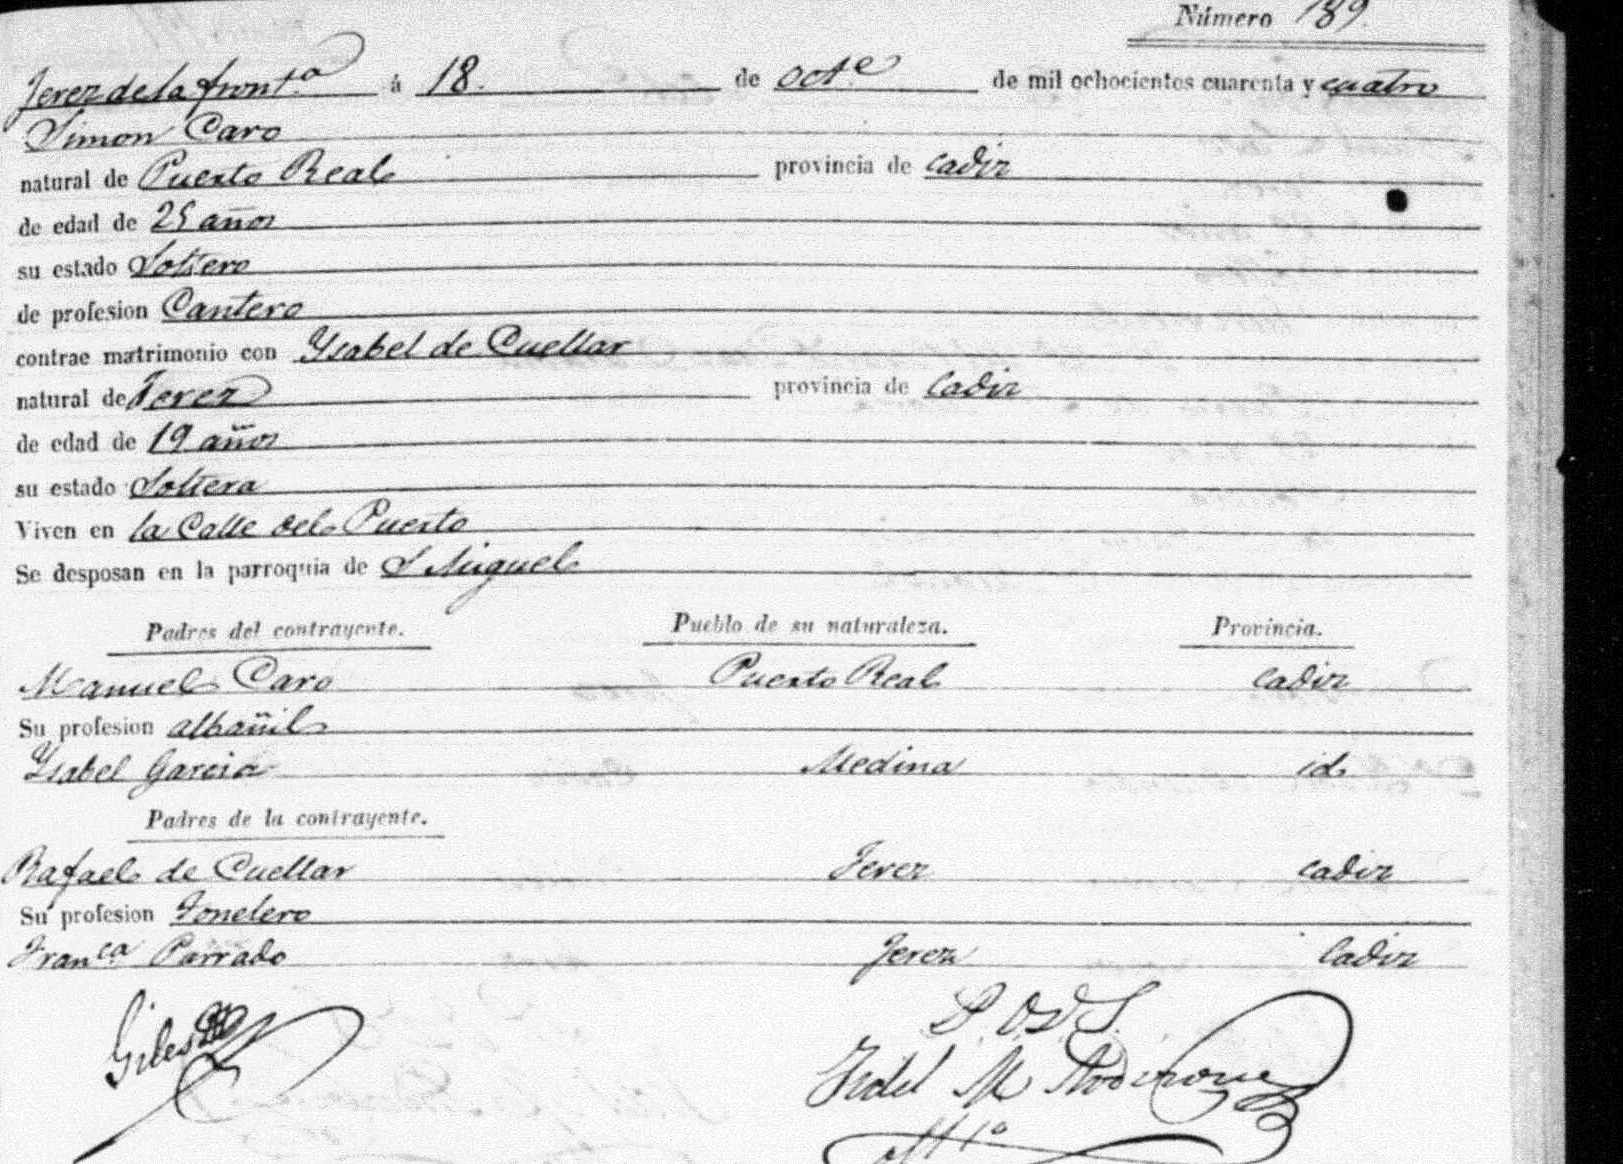 Número 189.
Jerez de la front.a á 18. de oct.e de mil ochocientos cuarenta y cuatro
Simon Caro
natural de Puerto Real provincia de Cadiz
de edad de 25 años
su estado Soltero
de profesion Cantero
contrae matrimonio con Ysabel de Cuellar
natural de Jerez provincia de Cadiz
de edad de 19 años
su estado Soltera
Viven en la Calle del Puerto
Se desposan en la parroquia de S Miguel
Padres del contrayente. Pueblo de su naturaleza. Provincia.
Manuel Caro Puerto Real Cadiz
Su profesion albañil
Ysabel Garcia Medina id
Padres de la contrayente.
Rafael de Cuellar Jerez Cadiz
Su profesion Tonelero
Fran.ca Parrado Jerez Cadiz
Giles